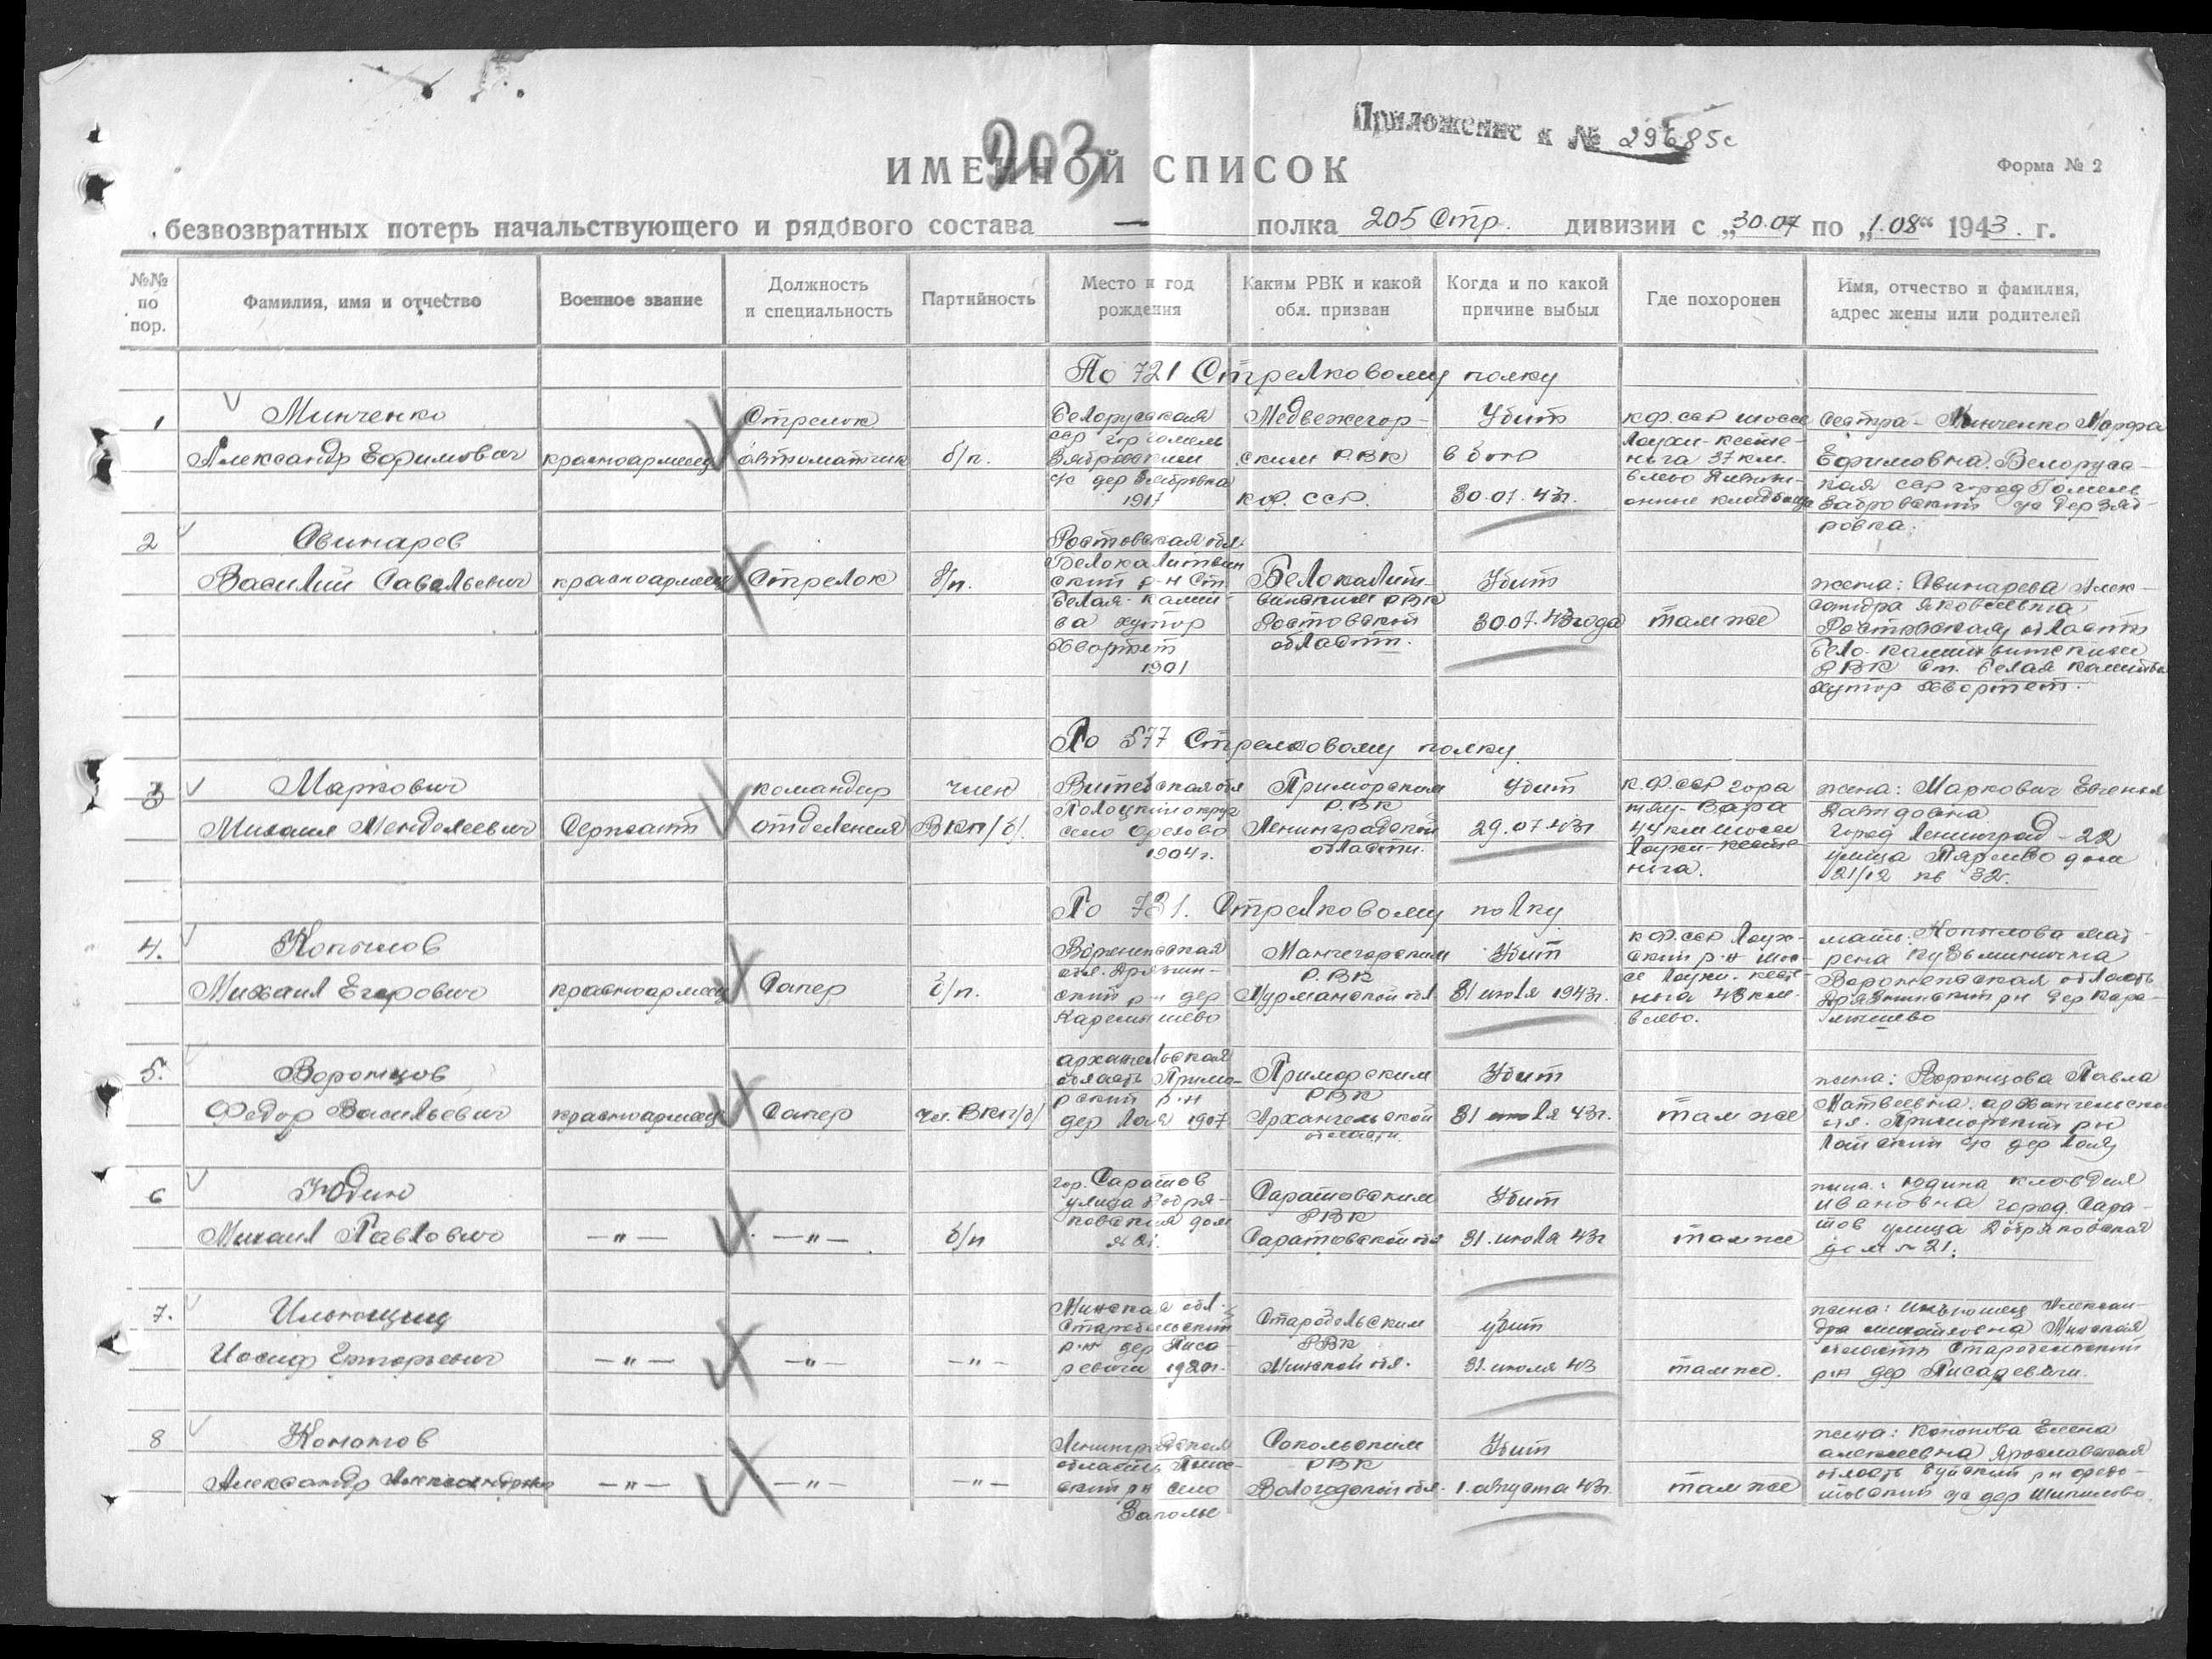 203
Приложение к № 29685с
ИМЕННОЙ СПИСОК
Форма № 2
безвозвратных потерь начальствующего и рядового состава — полка 205 Стр. дивизии с „30.07 по „1.08“ 1943. г.
№№ по пор.
Фамилия, имя и отчество
Военное звание
Должность и специальность
Партийность
Место и год рождения
Каким РВК и какой обл. призван
Когда и по какой причине выбыл
Где похоронен
Имя, отчество и фамилия, адрес жены или родителей
По 721 Стрелковому полку
1
Минченко
Александр Ефимович
красноармеец
Стрелок
автоматчик
б/п.
Белорусская
сср гор Гомель
с/с дер
1917
Медвежегор-
ским Р.В.К
КФ. ССР.
Убит
в бою
30.07.43г.
К.Ф.ССР шоссе
Лоухи-Кесте-
ньга 37 км.
влево
Сестра - Минченко Марфа
Ефимовна. Белорусс-
кая сср город Гомель
с/с дер Зяб-
ровка.
2
Свинарев
Василий Савельевич
красноармеец
Стрелок
б/п.
Ростовская обл.
Белокалитвин
ский р-н Ст.
Белая-Калит-
ва хутор
1901
Белокалит-
винским РВК
Ростовской
области.
Убит
30.07.43года
там же
жена: Свинарева Алек-
сандра Яковлевна
Ростовская область
РВК ст. Белая Калитва
хутор
По 577 Стрелковому полку.
3
Маркович
Михаил Менделеевич
Сержант
командир
отделения
член
ВКП/б/.
Витебская обл
Полоцкий округ
село Орехово
1904г.
Приморским
Р.В.К
Ленинградской
области.
Убит
29.07.43г
К.Ф.ССР гора
44 км шоссе
Лоухи-Кесте
ньга.
жена: Маркович Евгения
Давидовна
город Ленинград-22
улица дом
21/12 кв 32.
По 731. Стрелковому полку
4.
Копылов
Михаил Егорович
красноармеец
Сапер
б/п.
Воронежская
обл.
ский р-н дер
Карамышево
Мончегорским
Р.В.К
Мурманской обл
Убит
31 июля 1943г.
К.Ф.ССР Лоух-
ский р-н шос-
се Лоухи-Кесте-
ньга 43 км.
влево.
мать: Копылова Мат-
рена Кузьминична
Воронежская область
рн дер Кара-
мышево
5.
Воронцов
Федор Васильевич
красноармеец
Сапер
чл. ВКП/б/
Архангельская
область Примо-
рский р-н
дер Лая 1907
Приморским
РВК
Архангельской
области.
Убит
31 июля 43г.
там же
жена: Воронцова Павла
Матвеевна. Архангельская
обл. Приморский рн
Лайский с/с дер Лая
6
Юдин
Михаил Павлович
—"—
—"—
б/п
гор. Саратов
улица
дом
№ 21.
Саратовским
РВК
Саратовской обл
Убит
31.июля 43г
там же
жена: Юдина Клавдия
Ивановна город Сара-
тов улица
дом № 21.
7.
Ильющиц
Иосиф Григорьевич
—"—
—"—
—"—
Минская обл.
Старобельский
р-н дер Писа-
ревичи 1920г.
Старобельским
РВК
Минской обл.
убит
31.июля 43
там же.
жена: Ильющец Алексан-
дра Михайловна Минская
область Старобельский
р-н дер Писаревичи.
8
Кононов
Александр Александрович
—"—
—"—
—"—
Ленинградская
область
ский рн село
Заполье
Сокольским
РВК
Вологодской обл.
Убит
1.августа 43г.
там же
жена: Кононова Елена
Алексеевна Ярославская
область рн
с/с дер Шипилово.